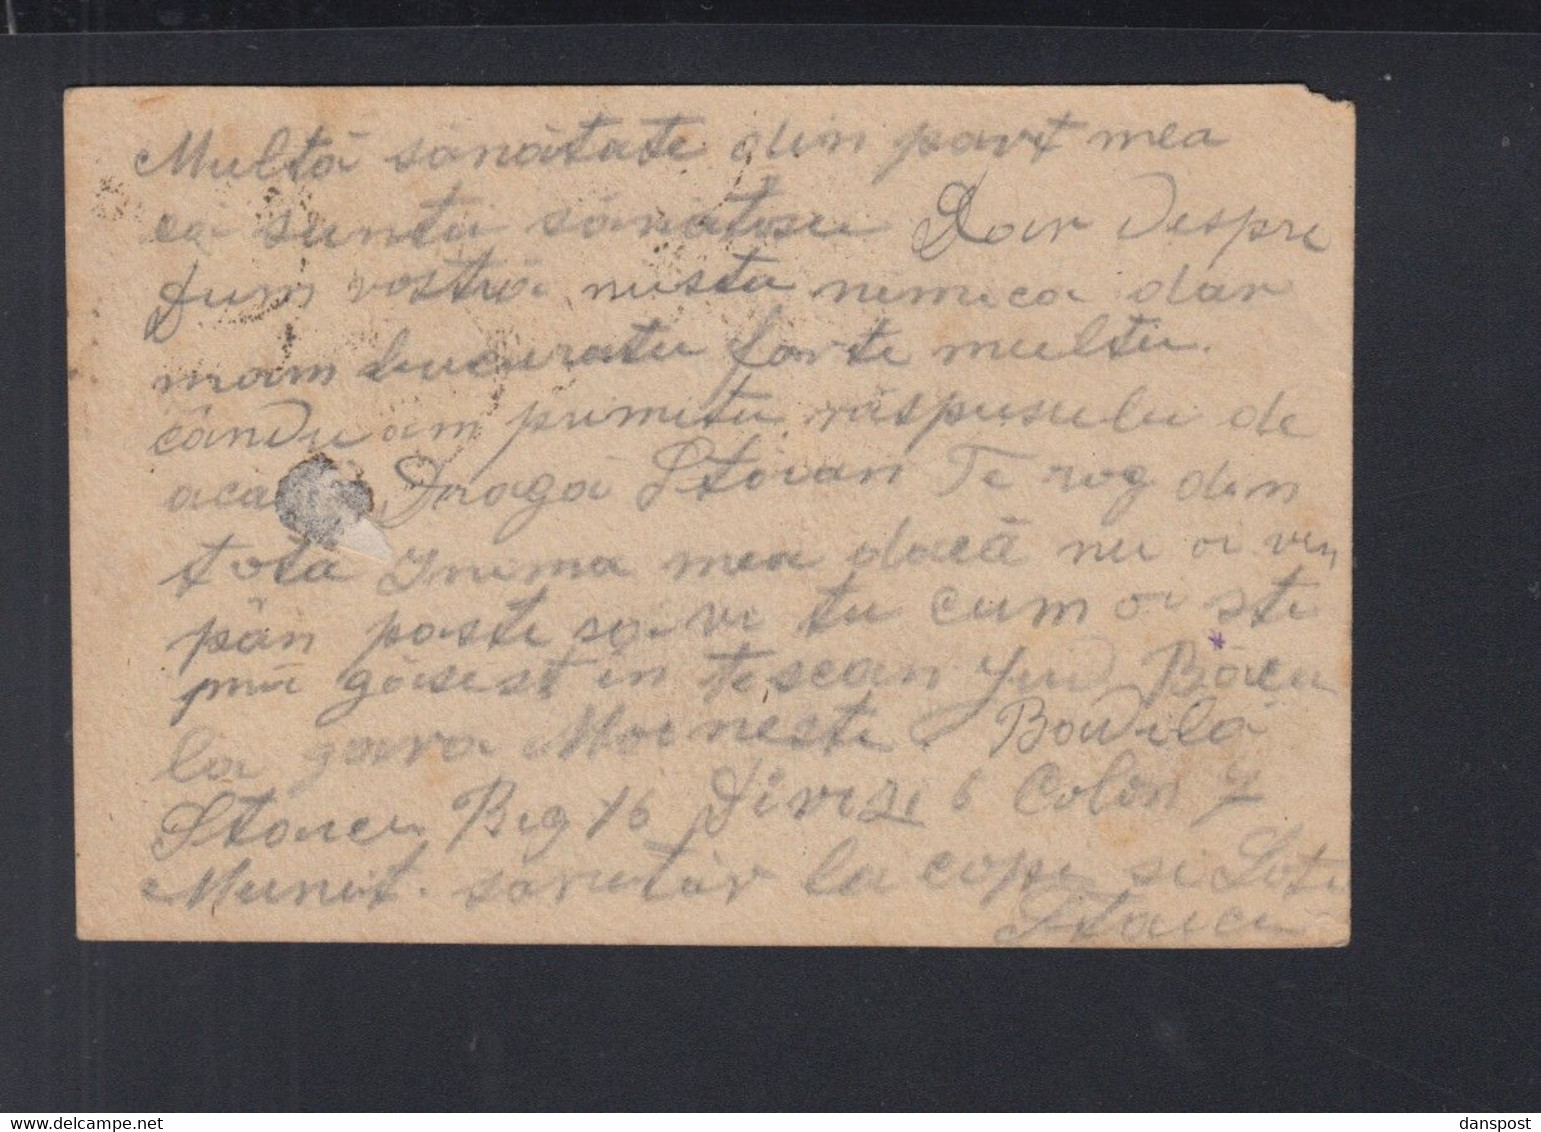 Multă sănătate din part mea
că suntu sănătosu Dar Despre
Dum vostră nustu nemica dar
mam bucuratu forte multu.
cându am primitu răspusulu de
aca Dragă Stoian Te rog din
totă Inima mea dacă nu oi ven
păn paste să vi tu cum oi sti
mă găsest in tescan Jud Băcău
la gara Moineste. Bowdilă
Stoner Big 16 Divizi 6 Colon 7
Munit. sărutăr la copi si Loti
Staicu
danspost